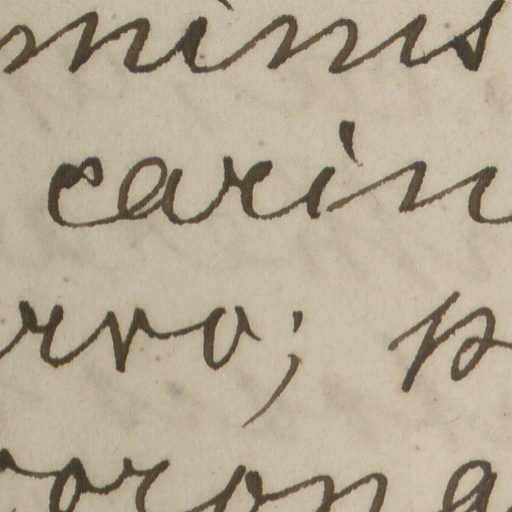 minis
carin
rvo; p
corona